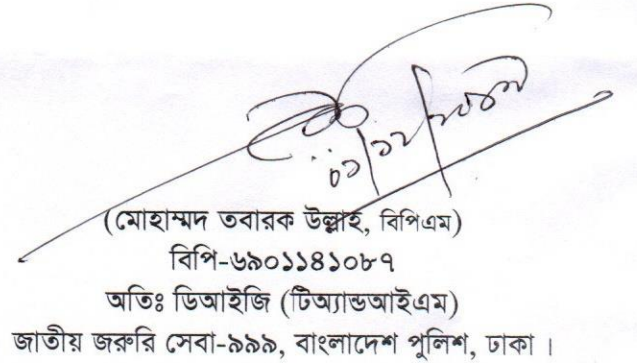 (মোহাম্মদ তবারক উল্লাহ, বিপিএম)
বিপি-৬৯০১১৪১০৮৭
অতিঃ ডিআইজি (টিঅ্যান্ডআইএম)
জাতীয় জরুরি সেবা-৯৯৯, বাংলাদেশ পুলিশ, ঢাকা।